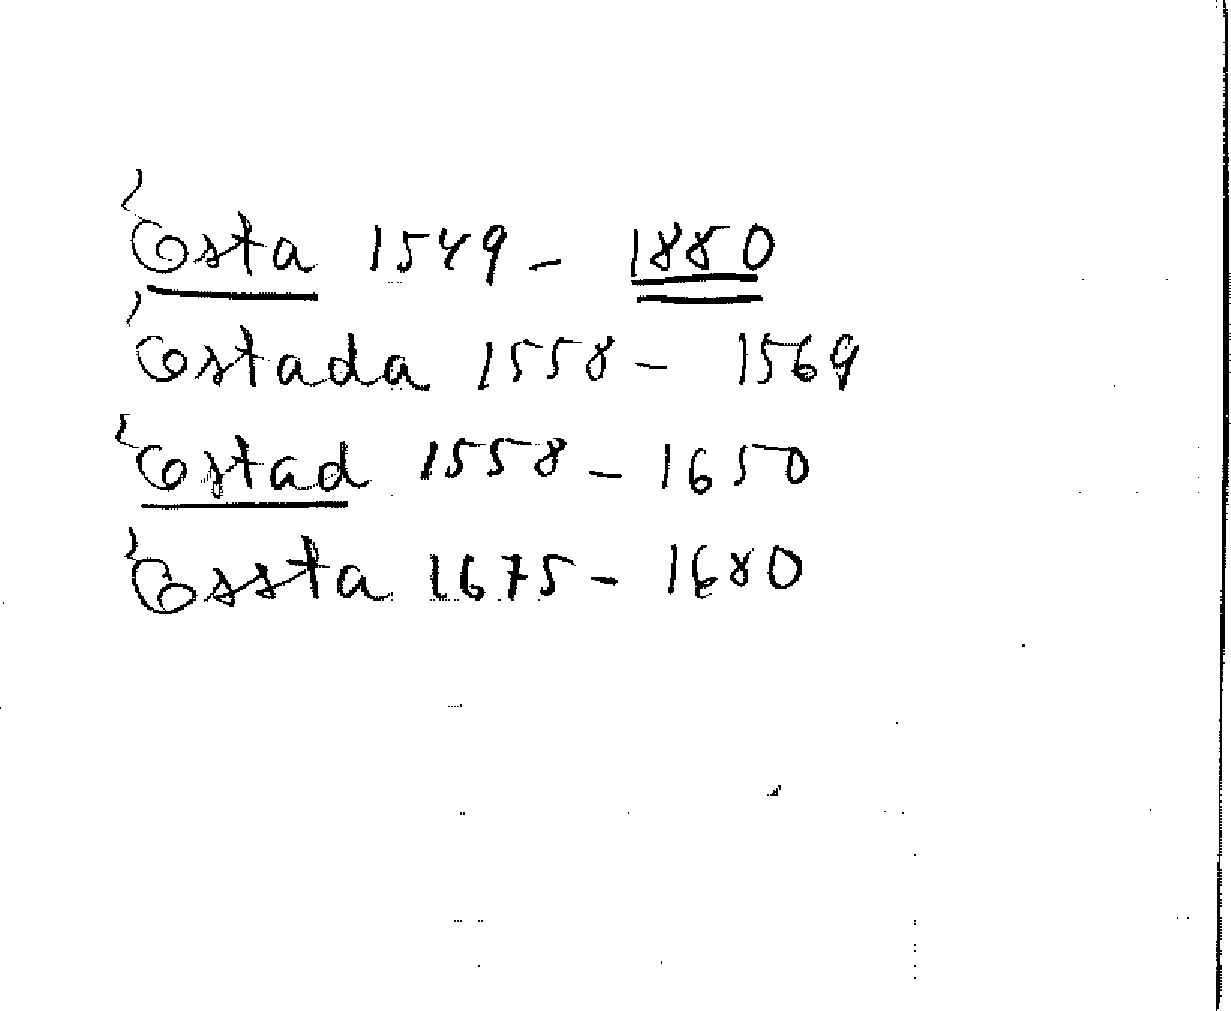 Esta 1549 - 1880
Estada 1558 - 1569
Estad 1558 - 1650
Essta 1675 - 1680